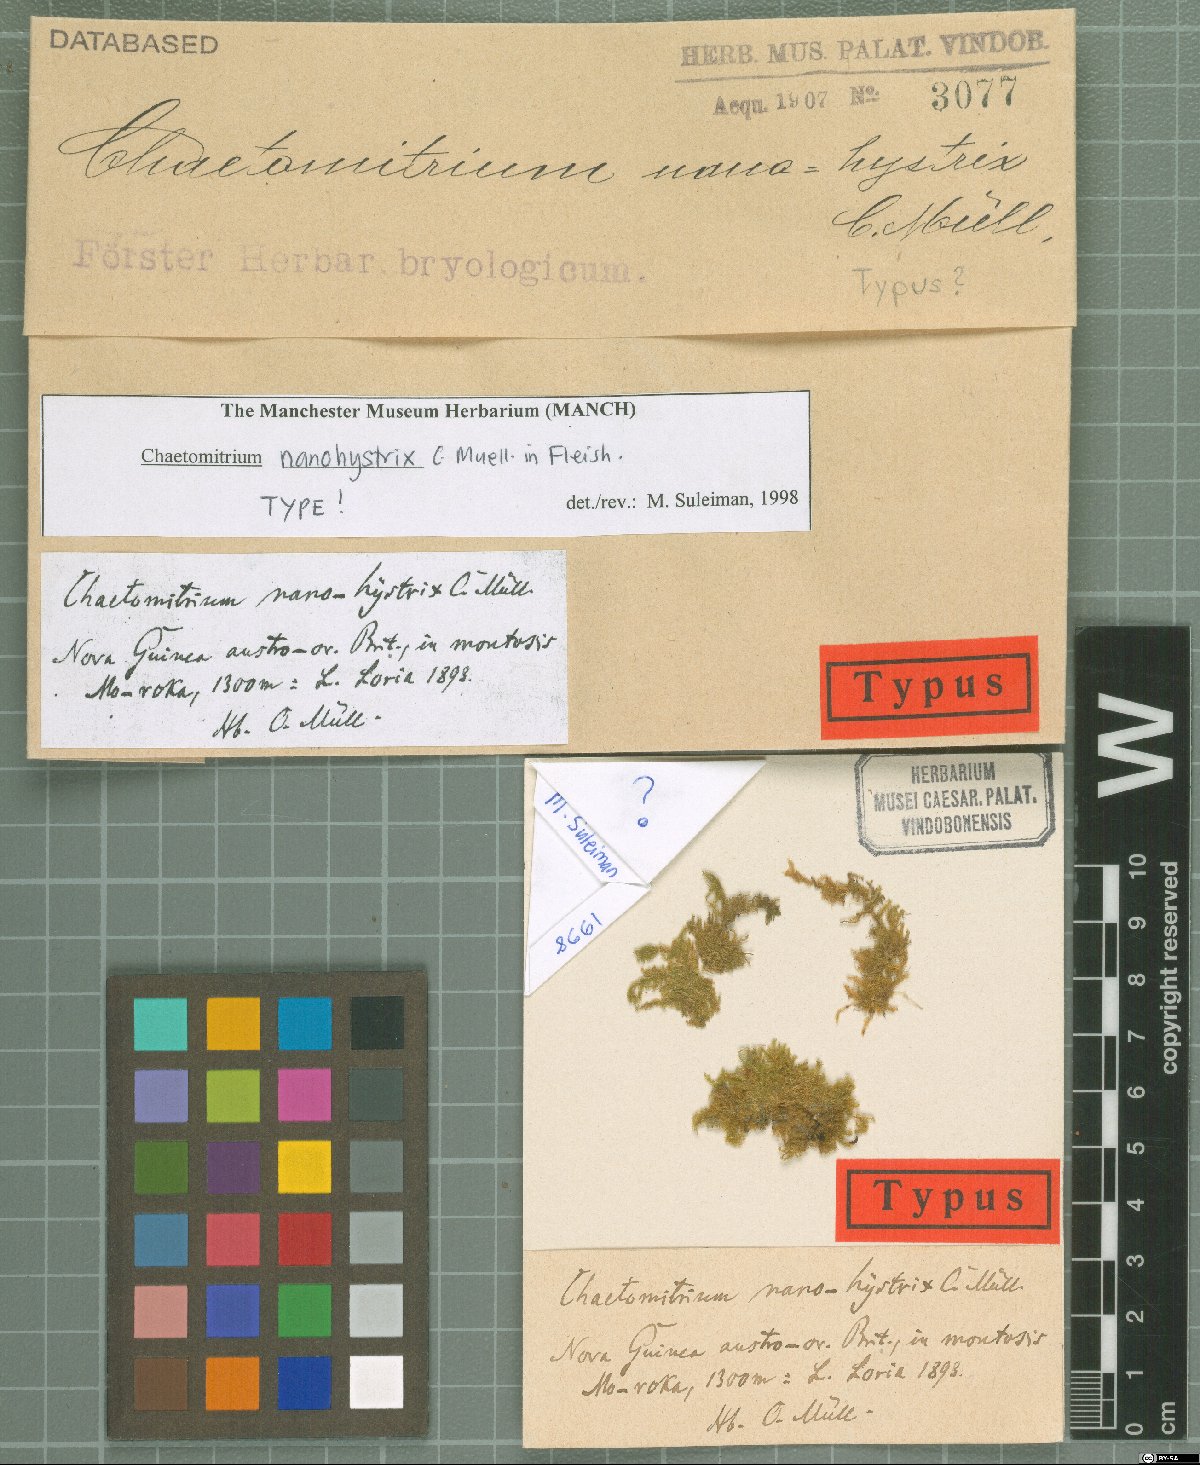 DATABASED
HERB. MUS. PALAT. VINDOB.
Acqu. 1907 No. 3077
Chaetomitrium nano=hystrix
C. Müll.
Förster Herbar. bryologicum.
Typus?
The Manchester Museum Herbarium (MANCH)
Chaetomitrium nanohystrix C. Muell. in Fleish.
TYPE!
det./rev.: M. Suleiman, 1998
Chaetomitrium nano-hystrix C. Müll.
Nova Guinea austro-or. Brit., in montosis
Mo-roka, 1300m = L. Loria 1893.
Hb. C. Müll.
Typus
HERBARIUM
MUSEI CAESAR. PALAT.
VINDOBONENSIS
?
M. Suleiman
1998
Typus
Chaetomitrium nano-hystrix C. Müll.
Nova Guinea austro-or. Brit., in montosis
Mo-roka, 1300m = L. Loria 1893.
Hb. C. Müll.
W
copyright reserved
10
9
8
7
6
5
4
3
2
1
0
cm
CC BY-SA